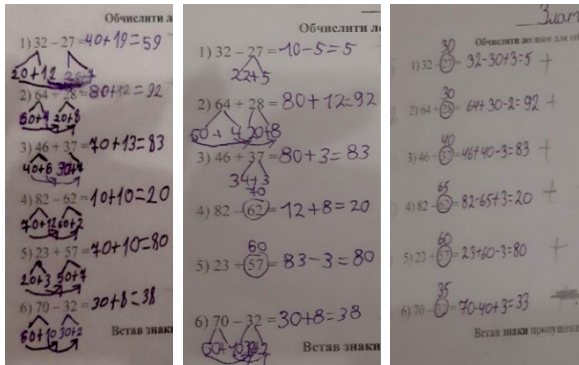 Обчислити л
1) 32 − 27 = 40+19=59
20+12
2) 64 + 28 = 80+12=92
60+4 20+8
3) 46 + 37 = 70+13=83
40+6 30+7
4) 82 − 62 = 10+10=20
70+12 60+2
5) 23 + 57 = 70+10=80
20+3 50+7
6) 70 − 32 = 30+8=38
60+10 30+2
Встав знаки
Обчислити ле
1) 32 − 27 = 10-5=5
22+5
2) 64 + 28 = 80+12=92
60+4 20+8
3) 46 + 37 = 80+3=83
34+3
70
4) 82 − 62 = 12+8=20
60
5) 23 + 57 = 83-3=80
6) 70 − 32 = 30+8=38
Встав знаки
Злат
Обчислити
30
1) 32 − 27 = 32-30+3=5 +
30
2) 64 + 28 = 64+30-2=92 +
40
3) 46 + 37 = 46+40-3=83 +
65
4) 82 − 62 = 82-65+3=20 +
60
5) 23 + 57 = 23+60-3=80 +
35
6) 70 − = 70-40+3=33
Встав знаки пропущен